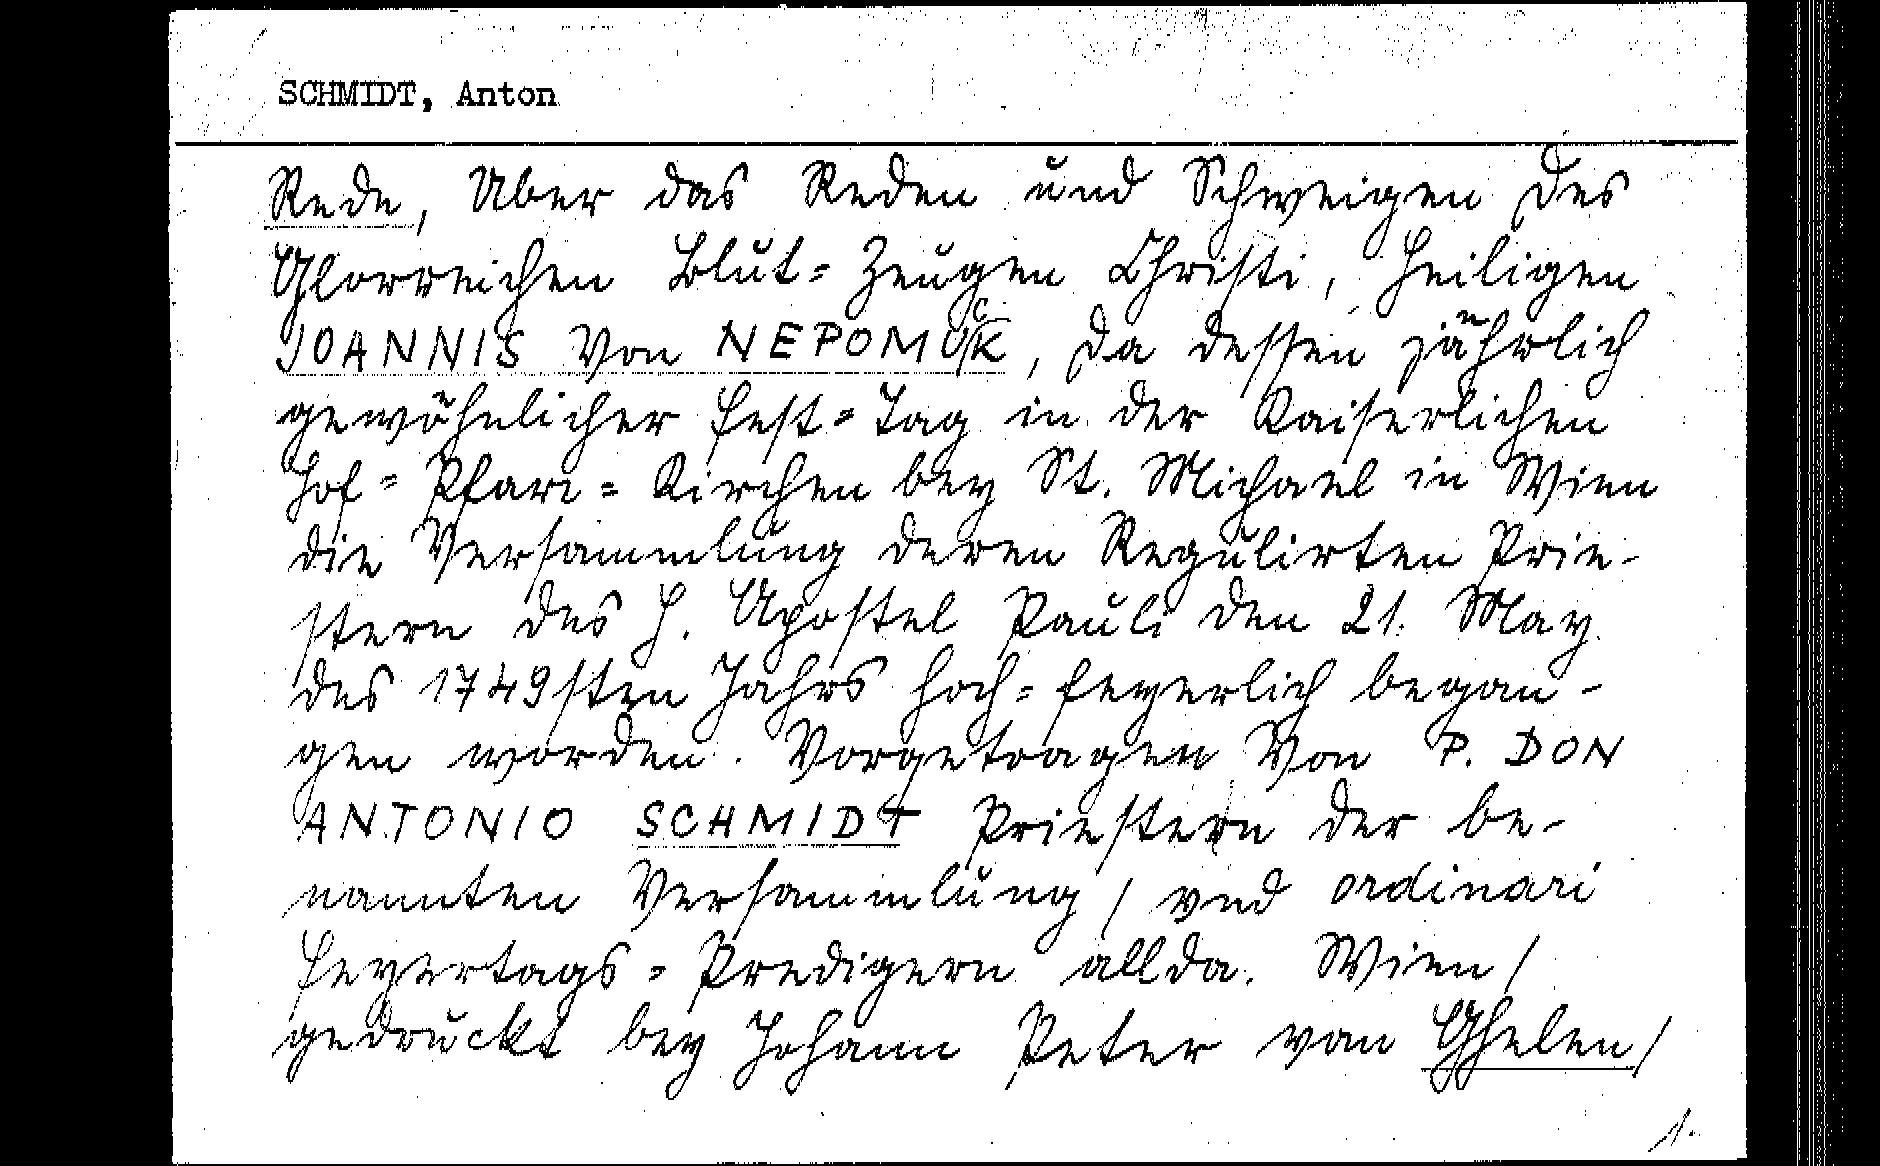 SCHMIDT, Anton
Rede, Uber das Reden und Schweigen des
Glorreichen Blut=Zeugen Christi, Heiligen
JOANNIS Von NEPOMUCK, da dessen jährlich
gewöhnlicher Fest=Tag in der Kaiserlichen
Hof=Pfarr=Kirchen bey St. Michael in Wien
die Versammlung deren Regulirten Prie-
stern des H. Apostel Pauli den 21. May
des 1749sten Jahrs hoch=feyerlich began-
gen worden. Vorgetragen Von P. DON
ANTONIO SCHMIDT Priestern der be-
nannten Versammlung / vnd ordinari
Feyertags=Predigern allda. Wien /
gedruckt bey Johann Peter van Ghelen /
1.